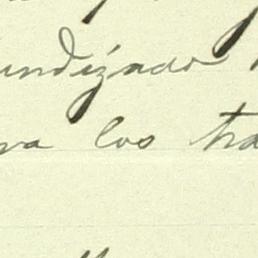 undizado
va los tra